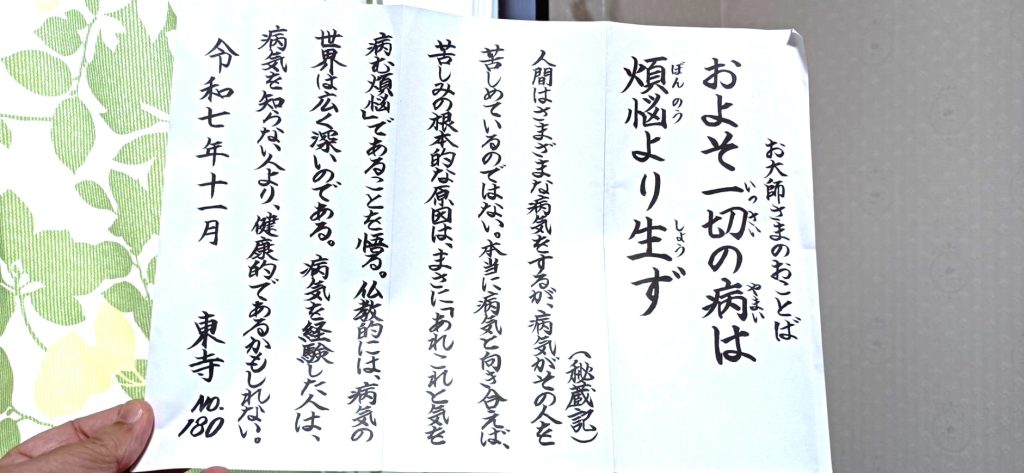 お大師さまのおことば
およそ一切の病は
いっさい
やまい
煩悩より生ず
ぼんのう
しょう
(秘蔵記)
人間はさまざまな病気をするが、病気がその人を
苦しめているのではない。本当に病気と向き合えば、
苦しみの根本的な原因は、まさに「あれこれと気を
病む煩悩」であることを悟る。仏教的には、病気の
世界は広く深いのである。病気を経験した人は、
病気を知らない人より、健康的であるかもしれない。
令和七年十一月 東寺 NO.180